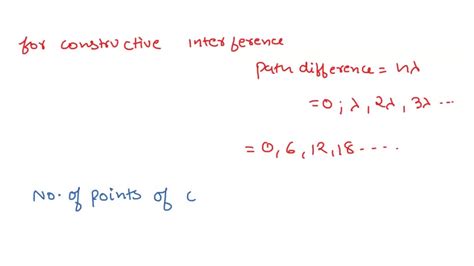 for constructive interference
path difference = nλ
= 0, λ, 2λ, 3λ ...
= 0, 6, 12, 18 ....
No. of points of c